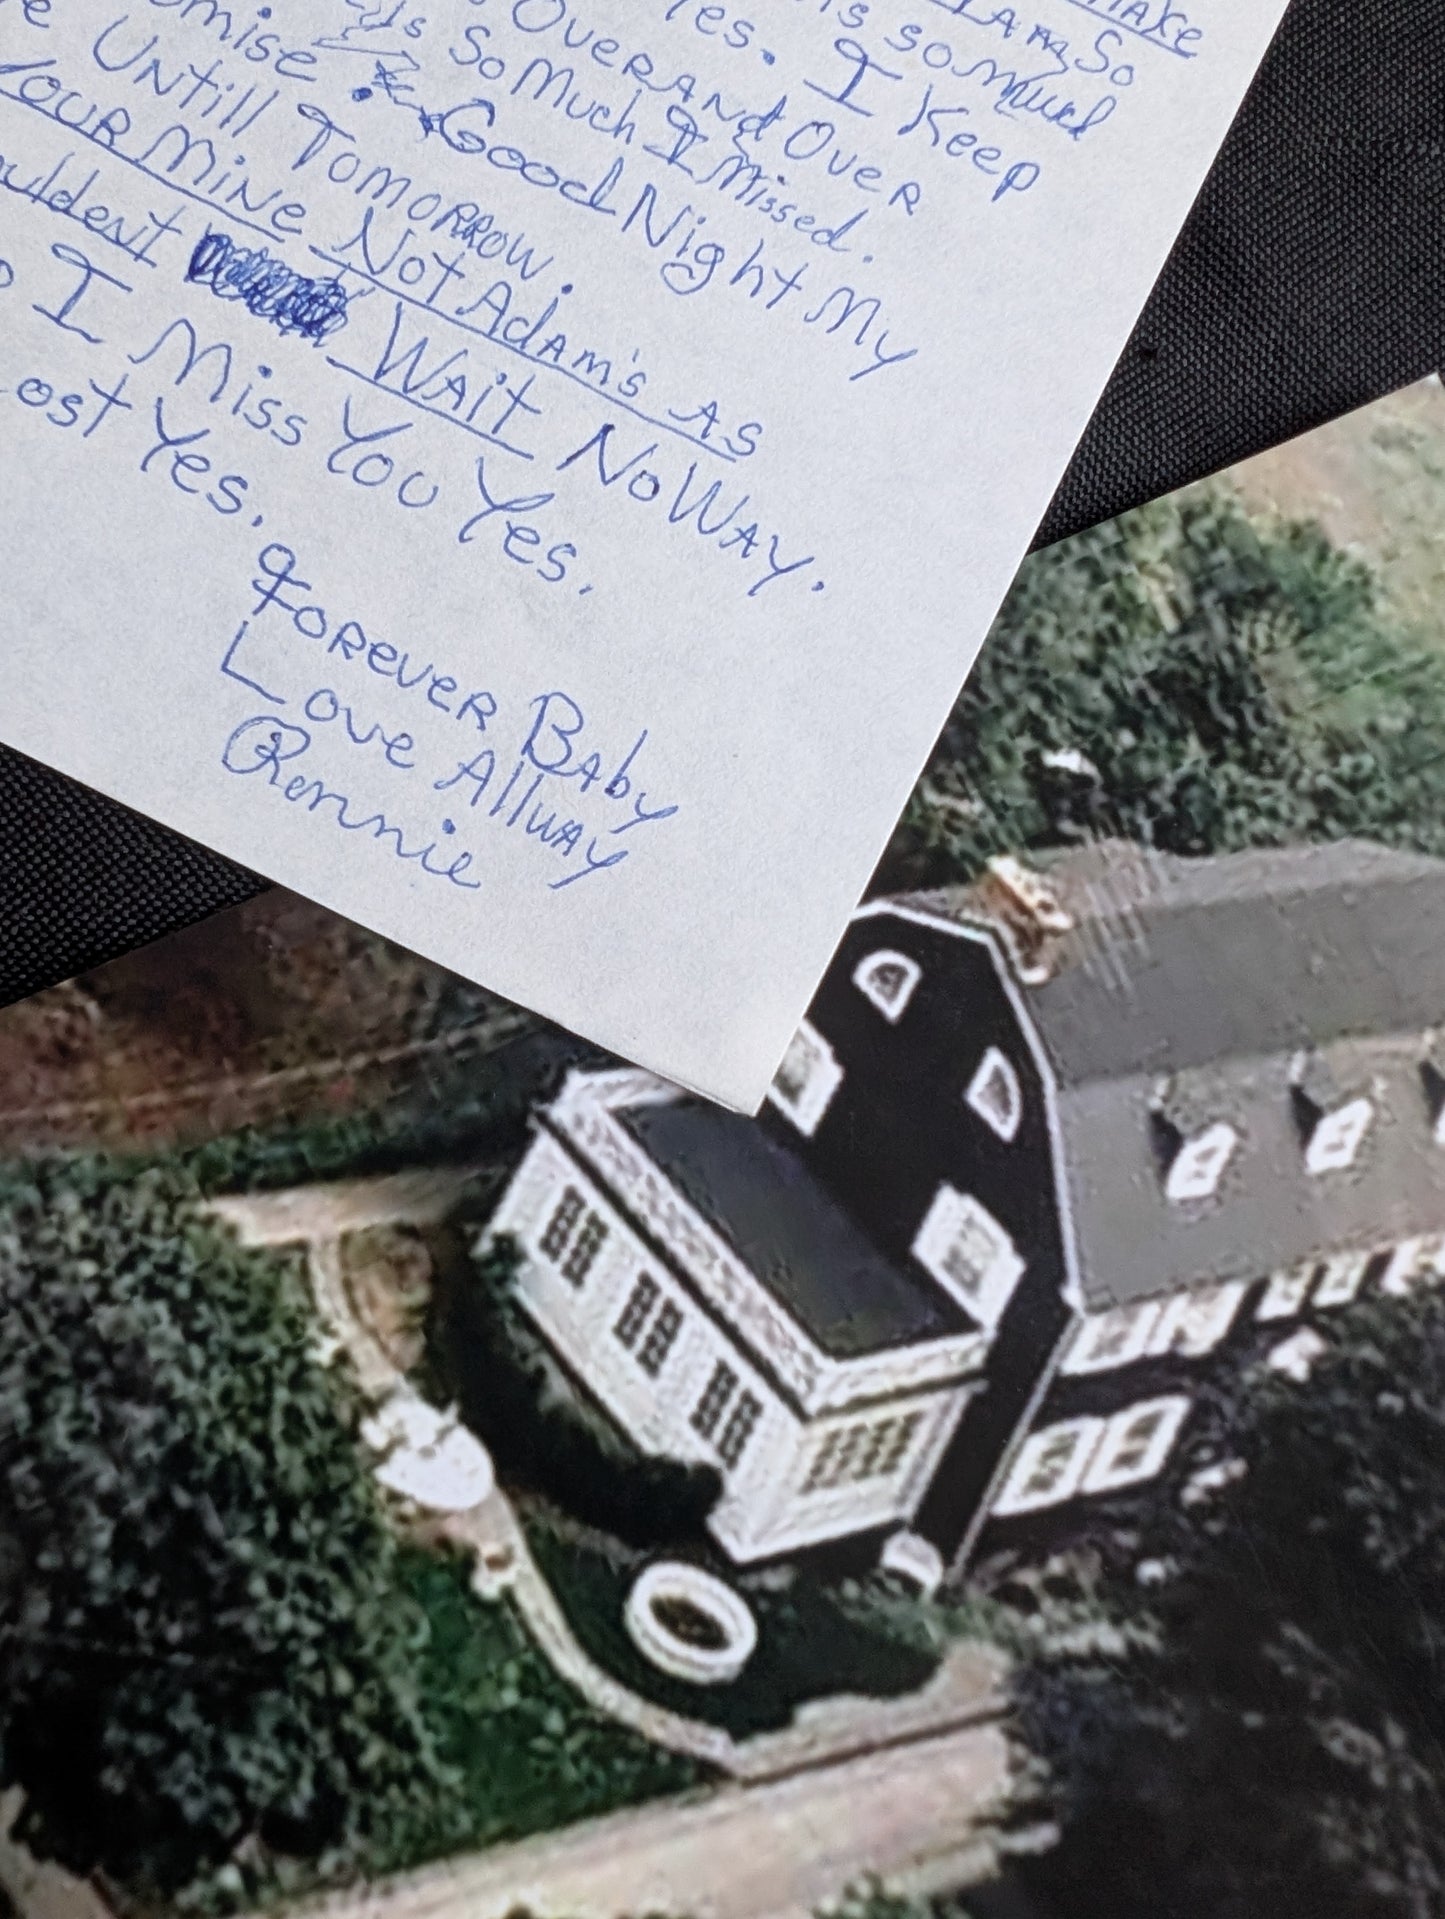 make
I Am So
is so much
Yes. I Keep
Over And Over
Is So Much I Missed.
Good Night My
Untill Tomorrow.
Your Mine Not Adam's As
Wait No Way.
I Miss You Yes.
Yes.
Forever Baby
Love Allway
Ronnie